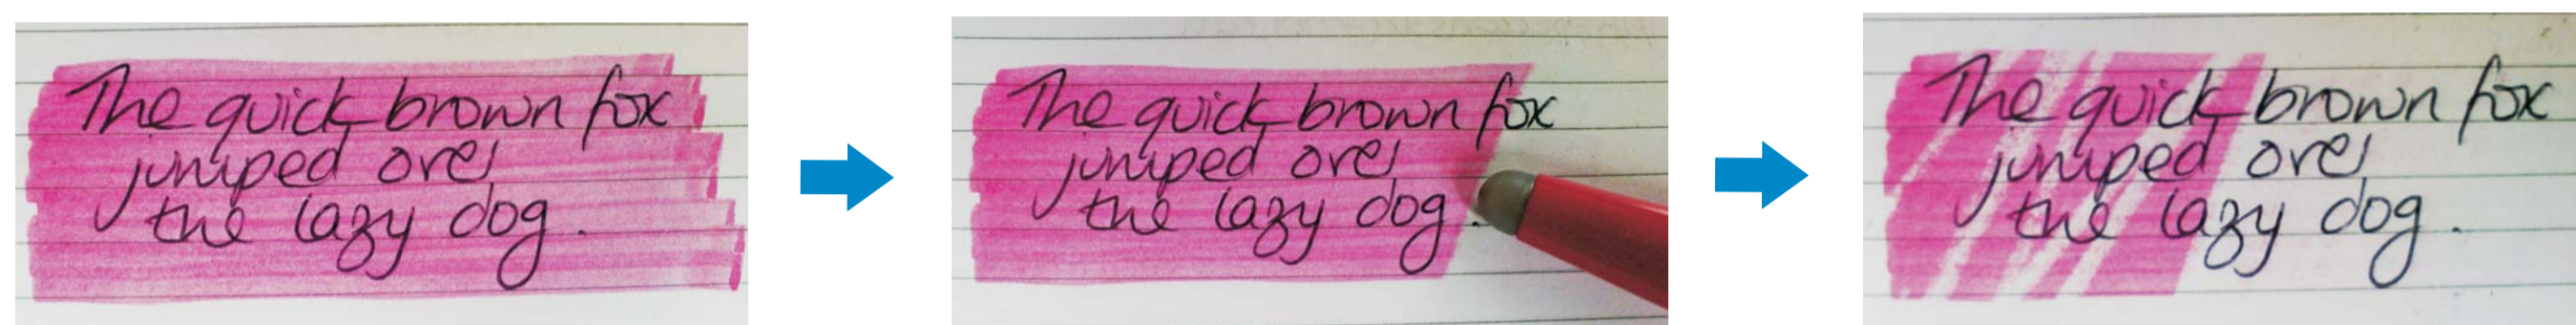 The quick brown fox
jumped over
the lazy dog.
The quick brown fox
jumped over
the lazy dog.
The quick brown fox
jumped over
the lazy dog.